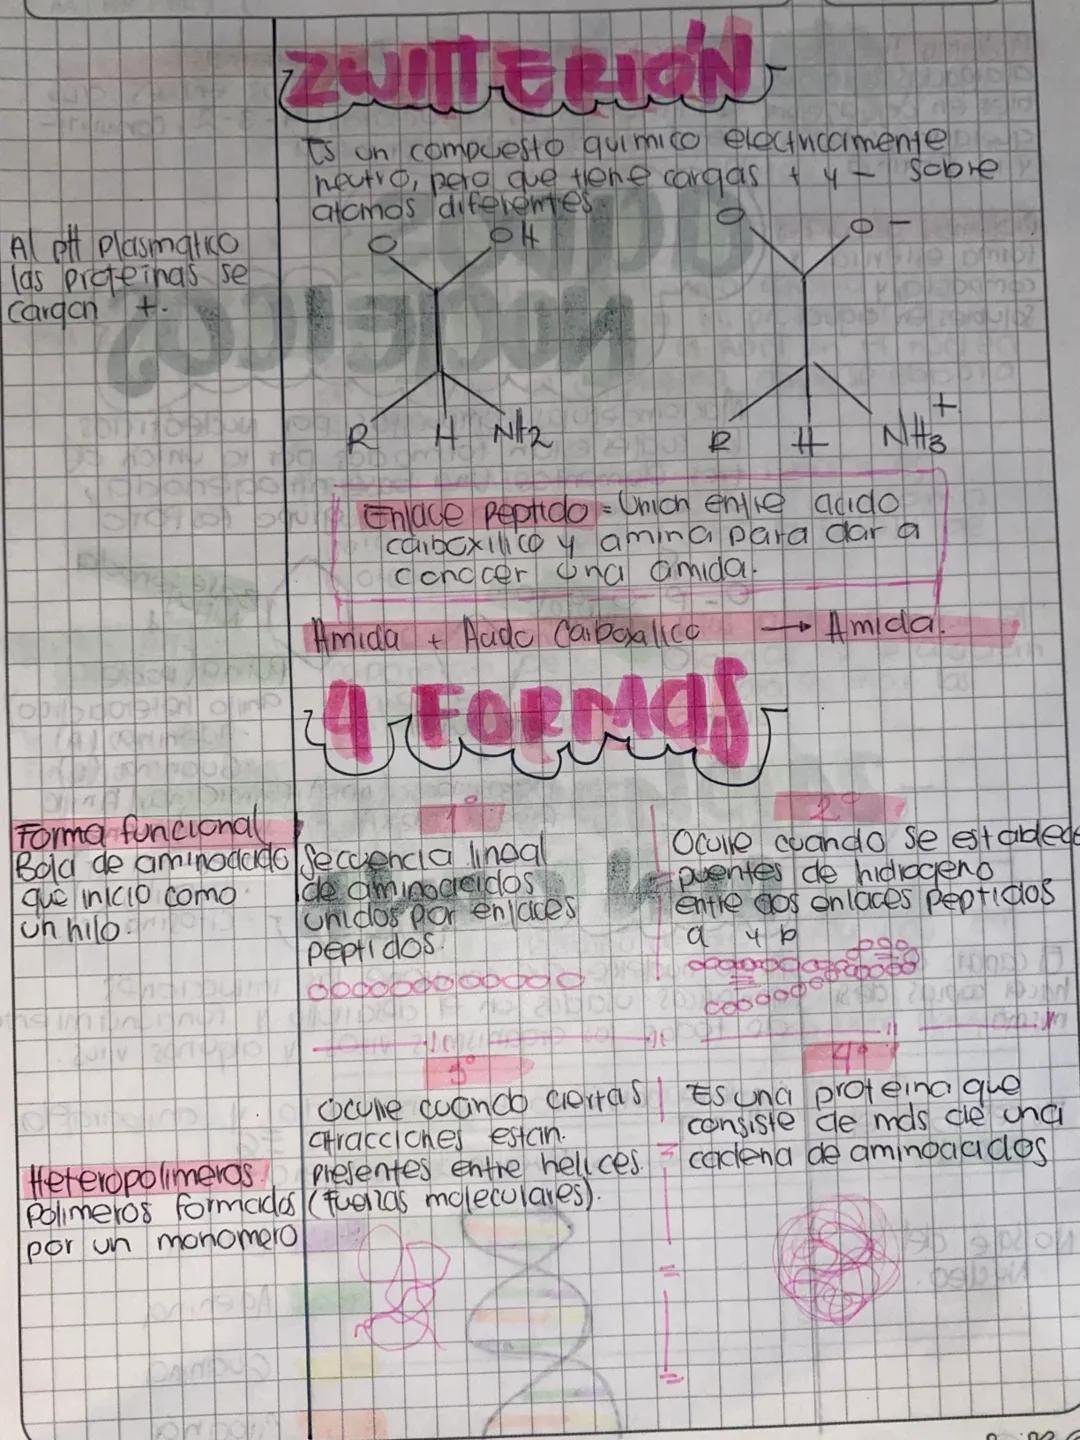 ZWITTERIÓN
Es un compuesto quimico electricamente
neutro, pero que tiene cargas + y - sobre
atomos diferentes.
Al pH plasmatico
las proteinas se
cargan +.
O OH
R H NH2
O O-
R H NH3+
Enlace peptido = Unión entre acido
carboxilico y amina para dar a
conocer una amida.
Amida + Acido Carboxalico → Amida.
4 FORMAS
Forma funcional
Bola de aminoacido
que inicio como
un hilo.
1°
Secuencia lineal
de aminoacidos
unidos por enlaces
peptidos.
2°
Ocurre cuando se establece
puentes de hidrogeno
entre dos enlaces peptidos
a y b
3°
Ocurre cuando ciertas
atracciones estan
presentes entre helices.
(fuerzas moleculares).
4°
Es una proteina que
consiste de mas de una
cadena de aminoacidos
Heteropolimeros
Polimeros formados
por un monomero